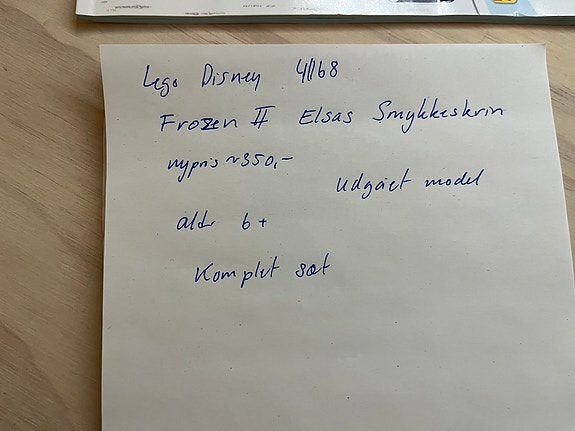 Lego Disney 41168
Frozen II Elsas Smykkeskrin
nypris ~350,-
Udgået model
aldr 6+
Komplet sæt